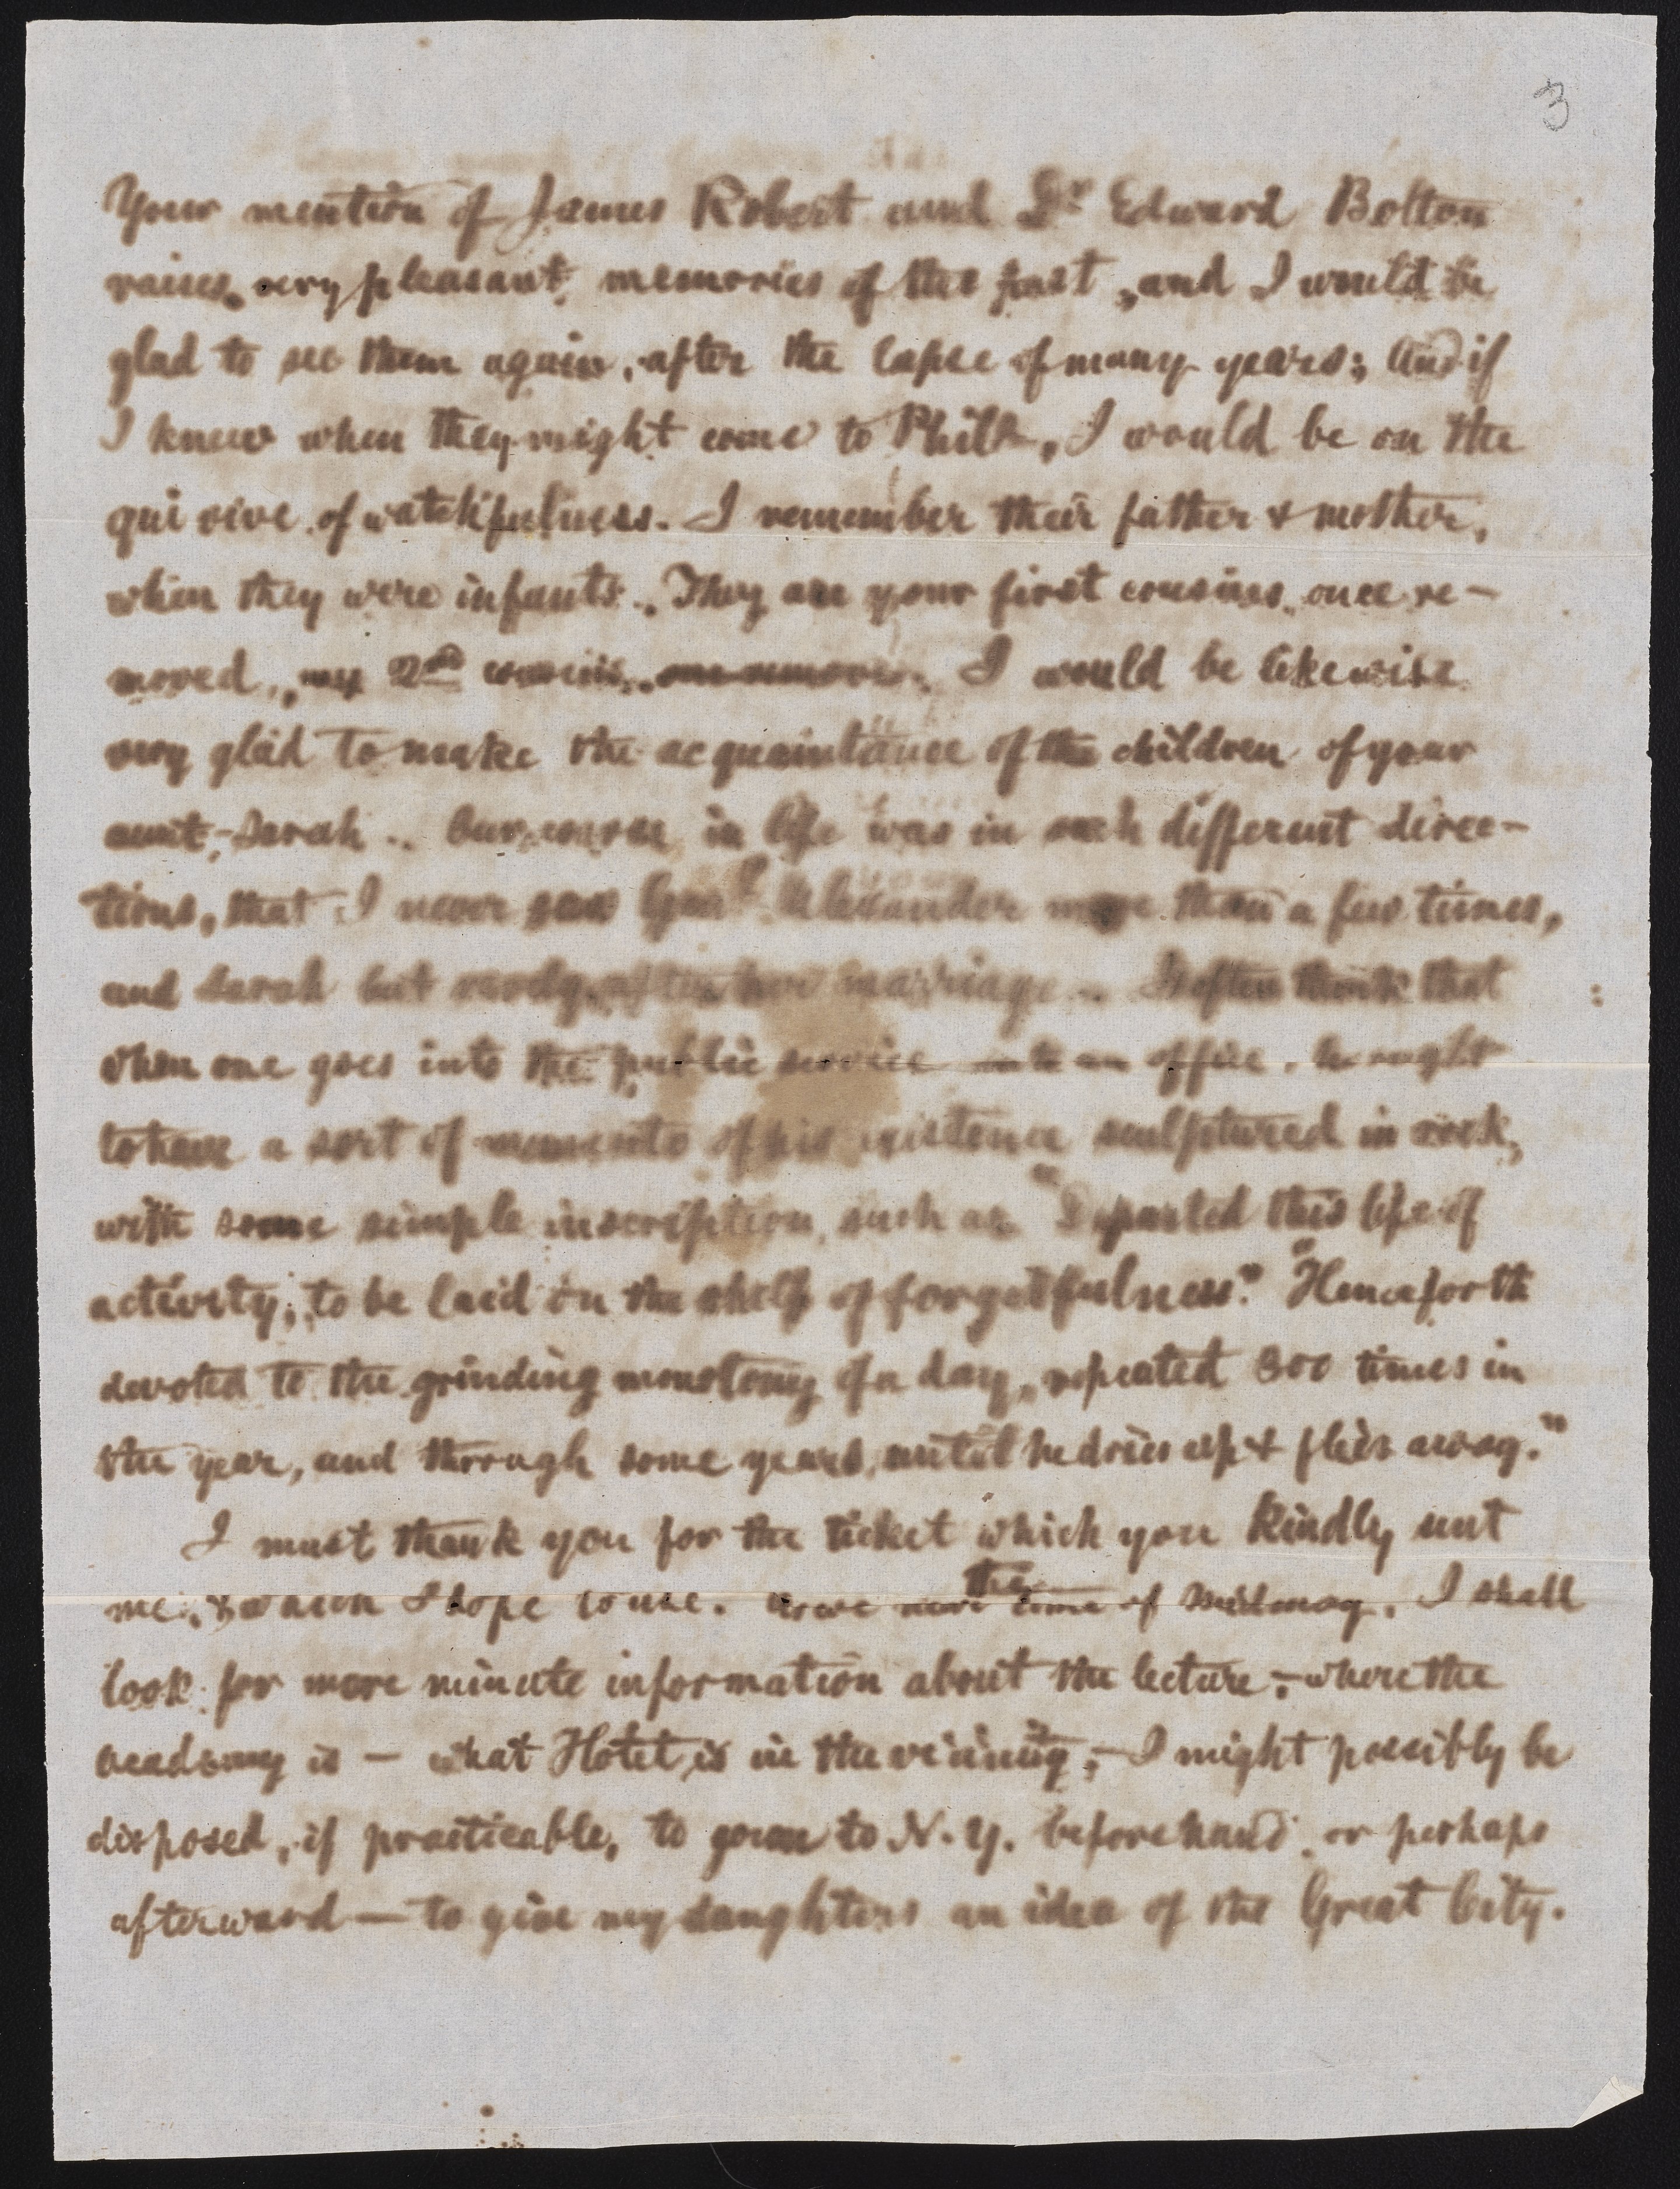 3
Your mention of James Robert and Dr Edward Bolton
raises very pleasant memories of the past, and I would be
glad to see them again, after the lapse of many years; and if
I knew when they might come to Phila, I would be on the
qui vive of watchfulness. I remember their father & mother,
when they were infants. They are your first cousins once re-
moved, my 2nd cousins. I would be likewise
very glad to make the acquaintance of the children of your
aunt, Sarah. Our course in life was in such different direc-
tions, that I never saw Genl Alexander more than a few times,
and Sarah but rarely after her marriage. I often think that
when one goes into the public service into an office, he ought
to have a sort of memento of his existence sculptured in rock,
with some simple inscription, such as "Departed this life of
activity; to be laid on the shelf of forgetfulness." "Henceforth
devoted to the grinding monotony of a day, repeated 300 times in
the year, and through some years, until he dries up & flies away."
I must thank you for the ticket which you kindly sent
me, & which I hope to use. As we near the time of Midmay, I shall
look for more minute information about the lecture, - where the
academy is - what Hotel is in the vicinity, - I might possibly be
disposed, if practicable, to go on to N. Y. beforehand, or perhaps
afterward - to give my daughters an idea of the Great City.